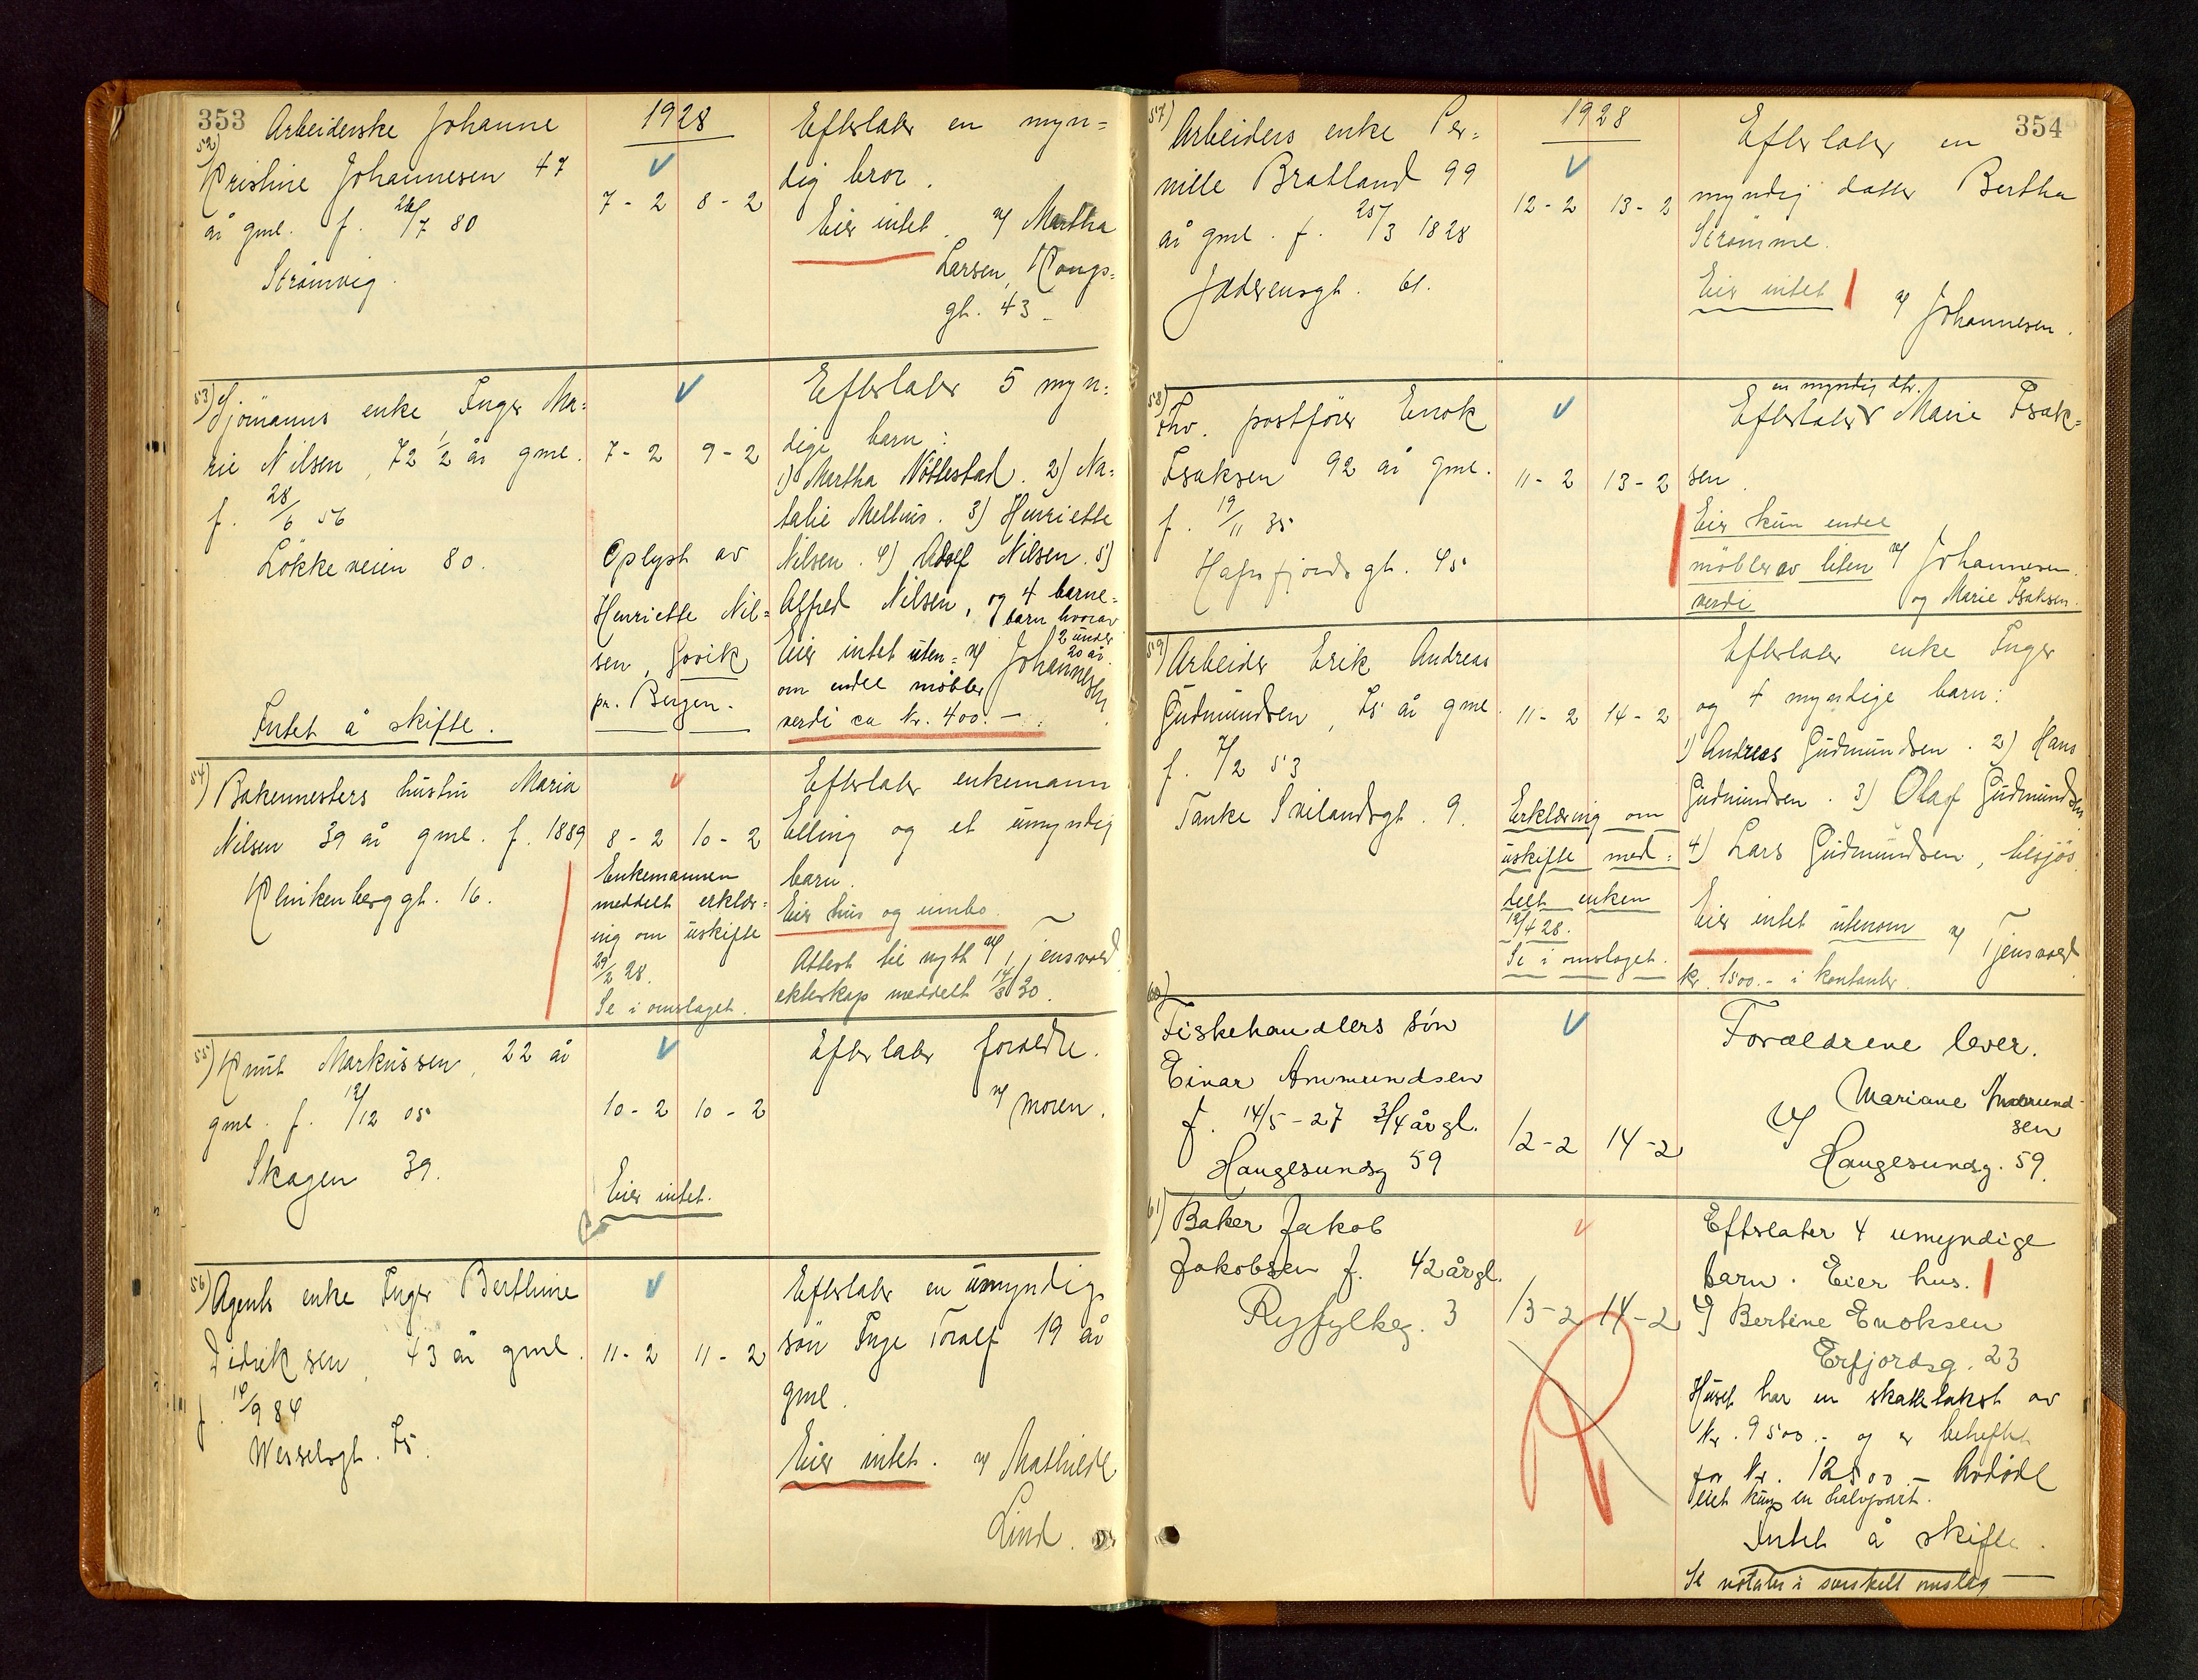 353
52) Arbeiderske Johanne
Kristine Johannesen 47
år gml. f. 26/7 80
Strömvig.
1928
7-2 8-2
Efterlater en myn=
dig bror.
Eier intet. v/ Martha
Larsen, Kongs=
gt. 43 –
53) Sjömanns enke Inger Ma=
rie Nilsen, 72 1/2 år gml.
f. 28/6 56
Lökkeveien 80.
Intet å skifte.
7-2 9-2
Oplyst av
Henriette Nil=
sen, Govik
pr. Bergen.
Efterlater 5 myn=
dige barn:
1) Martha Nöttestad. 2) Na=
talie Melhus. 3) Henriette
Nilsen. 4) Adolf Nilsen. 5)
Alfred Nilsen, og 4 barne=
barn hvorav
2 under
20 år.
Eier intet uten= v/ Johannesen
om endel möbler
verdi ca kr. 400.–
54) Bakermesters hustru Maria
Nilsen 39 år gml. f. 1889
Klinkenberggt. 16.
8-2 10-2
Enkemannen
meddelt erklær=
ing om uskifte
29/2 28.
Se i omslaget.
Efterlater enkemann
Elling og et umyndig
barn.
Eier hus og innbo.
v/ Tjensvold
Attest til nytt
ekteskap meddelt 14/3 30.
55) Knut Markussen, 22 år
gml. f. 12/12 05
Skagen 39.
10-2 10-2
Eier intet.
Efterlater foreldre.
v/ moren.
56) Agents enke Inger Berthine
Didriksen, 43 år gml.
f. 14/9 84
Wesselsgt. 75.
11-2 11-2
Efterlater en umyndig
sön Inge Toralf 19 år
gml.
Eier intet. v/ Mathilde
Lind.
354
57) Arbeiders enke Per=
nille Bratland 99
år gml. f. 25/3 1828
Jæderensgt. 61.
1928
12-2 13-2
Efterlater en
myndig datter Bertha
Strömme.
Eier intet v/ Johannesen.
58) Fhv. postförer Enok
Isaksen 92 år gml.
f. 19/11 35
Hafrsfjordsgt. 45
11-2 13-2
en myndig dtr.
Efterlater Marie Isak=
sen.
Eier kun endel
möbler av liten v/ Johannesen
verdi og Marie Isaksen.
59) Arbeider Erik Andreas
Gudmundsen, 75 år gml.
f. 7/2 53
Tanke Svilandsgt. 9.
11-2 14-2
Erklæring om
uskifte med=
delt enken
12/4 28.
Se i omslaget.
Efterlater enke Inger
og 4 myndige barn:
1) Andreas Gudmundsen. 2) Hans
Gudmundsen. 3) Olaf Gudmundsen
4) Lars Gudmundsen, tilsjös.
Eier intet utenom v/ Tjensvold
kr. 1500.– i kontanter.
60) Fiskehandlers sön
Einar Ammundsen
f. 14/5-27 3/4 år gl.
Haugesundsg 59
12-2 14-2
Forældrene lever.
v/ Mariane Ammund-
sen
Haugesundsg. 59.
61) Baker Jakob
Jakobsen f. 42 år gl.
Ryfylkeg. 3
13-2 14-2
Efterlater 4 umyndige
barn. Eier hus.
v/ Bertine Enoksen
Erfjordsg. 23
Huset har en skattetakst av
kr. 9500.– og er beheftet
for kr. 12500 – Avdöde
eiet kun en halvpart.
Intet å skifte.
Se notater i særskilt omslag –